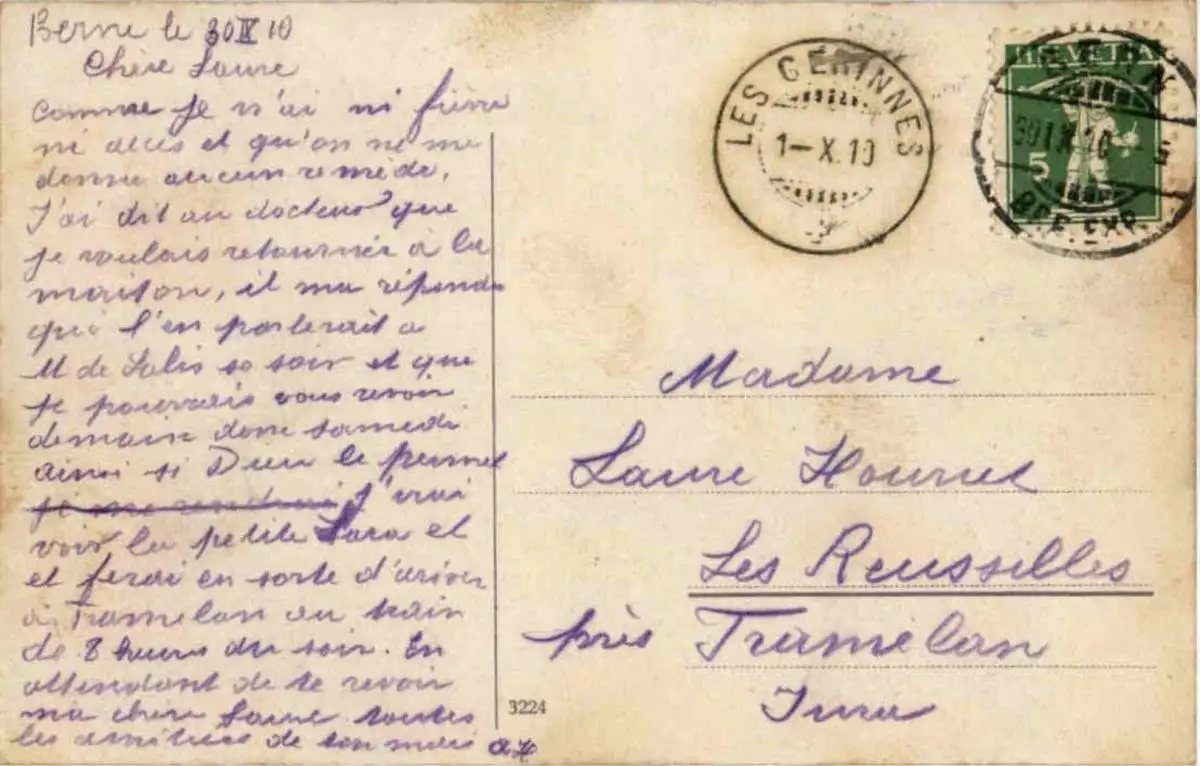 Berne le 30 IX 10
Chère Laure
comme je n'ai ni fièvre
ni accès et qu'on ne me
donne aucun remède,
J'ai dit au docteur que
je voulais retourner à la
maison, il m'a répondu
qui l'en parlerait a
M de Salis so soir et que
je pourrais vous revoir
demain donc samedi
ainsi si Dieu le permet
j'irai
voir la petite Sara et
et ferai en sorte d'ariver
à Tramelan au train
de 8 heures du soir. En
attendant de te revoir
ma chère Laure toutes
les amitiés de ton mari
LES GENINNES
1-X.10
HELVETIA
5
BERN
30 IX.10 - 5
BRF. EXP.
Madame
Laure Houriet
Les Reussilles
près Tramelan
Jura
3224